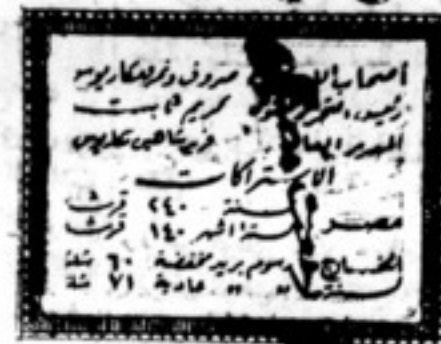 أصحاب صروف ونمر ومكاريوس
رئيس التحرير كريم ثابت
المدير العام فريد شاهين مكاريوس
الاشتراكات
مصر سنة ٢٤٠ قرشا
ستة أشهر ١٤٠ قرشا
الخارج رسوم بريد مخفضة ٦٠ شلنا
لسنة عادية ٧١ شلنا